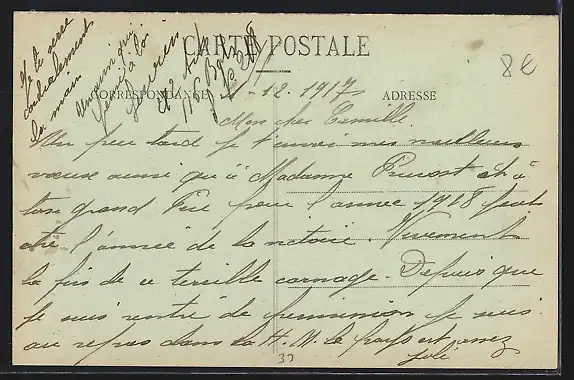 CARTE POSTALE
8€
CORRESPONDANCE
ADRESSE
-12-1917
Mon cher Camille.
Un peu tard je t'envoi mes meilleurs
vœux ainsi qu'à Madame Pruvost et à
ton grand Fils pour l'année 1918 peut
être l'année de la victoire. Vivement
la fin de ce terrible carnage. Depuis que
je suis rentré de permission je suis
au repos dans la H. M. le pays est assez
joli
37
Je te serre
cordialement
la main
pense à toi